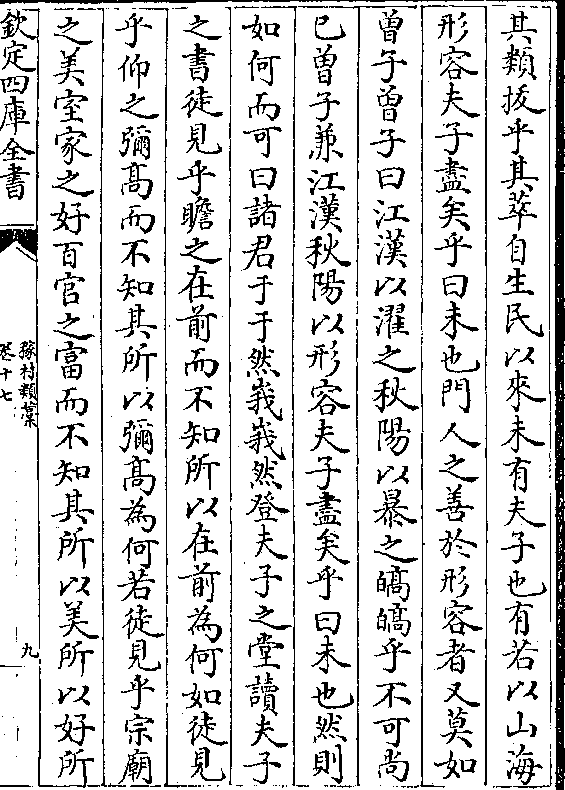 其類拔乎其萃自生民以來未有夫子也有若以山海
形容夫子盡矣乎曰未也門人之善於形容者又莫如
曾子曾子曰江漢以濯之秋陽以暴之皜皜乎不可尚
已曾子兼江漢秋陽以形容夫子盡矣乎曰未也然則
如何而可曰諸君于于然峩峩然登夫子之堂讀夫子
之書徒見乎瞻之在前而不知所以在前為何如徒見
乎仰之彌髙而不知其所以彌髙為何若徒見乎宗廟
之美室家之好百官之富而不知其所以美所以好所
欽定四庫全書
豫村類藁
卷十七
九